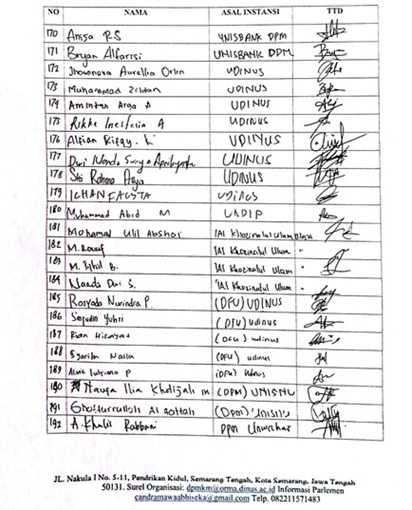 NO NAMA ASAL INSTANSI TTD
170 Anisa R S UNISBANK DPM
171 Bryan Alfarisi UNISBANK DPM
172 Aurellia UDINUS
173 Muhammad Zildan UDINUS
174 Amintan Arga A UDINUS
175 Rikke Inestesia A UDINUS
176 Alfian Rizqy. K UDINUS
177 Dwi Nanda Surya UDINUS
178 Siti Rahma UDINUS
179 ICHAN FAUSTA UDINUS
180 Muhammad Abid M UNDIP
181 Mohamad Ulil Abshor IAI Khozinatul Ulum Blora
182 M. Rouuf IAI Khozinatul Ulum "
183 M. B. IAI Khozinatul Ulum "
184 Nanda Dwi S. IAI Khozinatul Ulum "
185 Rosyada Nurindra P. (DFU) UDINUS
186 Yuhri (DFU) udinus
187 (DFU) udinus
188 Syarifa Naila (DFU) udinus
189 P (DFU) Udinus
190 Haura Ilia Khodijah M (DPM) UNISNU
191 Ghoffurrullah Al (DPM) UNISNU
192 A. Khalil Rabbani DPM Unwahas
JL. Nakula I No. 5-11, Pendrikan Kidul, Semarang Tengah, Kota Semarang, Jawa Tengah
50131. Surel Organisasi: dpmkm@orma.dinus.ac.id Informasi Parlemen
candramawaabhiseka@gmail.com Telp. 082211571483